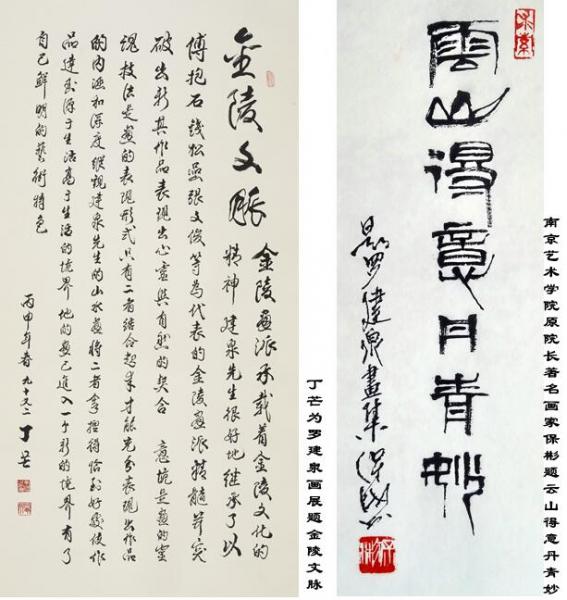 南京艺术学院原院长著名画家保彬题云山得意丹青妙
雲山得意丹青妙
題罗健泉畫集 保彬
丁芒为罗建泉画展题金陵文脉
金陵文脈
金陵画派承载着金陵文化的
精神 建泉先生很好地继承了以
傅抱石 钱松喦 張文俊等為代表的金陵画派精髓并突
破出新其作品表现出心靈與自然的契合 意境是画的灵
魂技法是画的表现形式只有二者结合起来才能充分表现出作品
的内涵和深度纵观建泉先生的山水画将二者拿捏得恰到好处使作
品达到源于生活高于生活的境界 他的画已進入一个新的境界 有了
自己鲜明的藝術特色
丙申年春 九十又二 丁芒